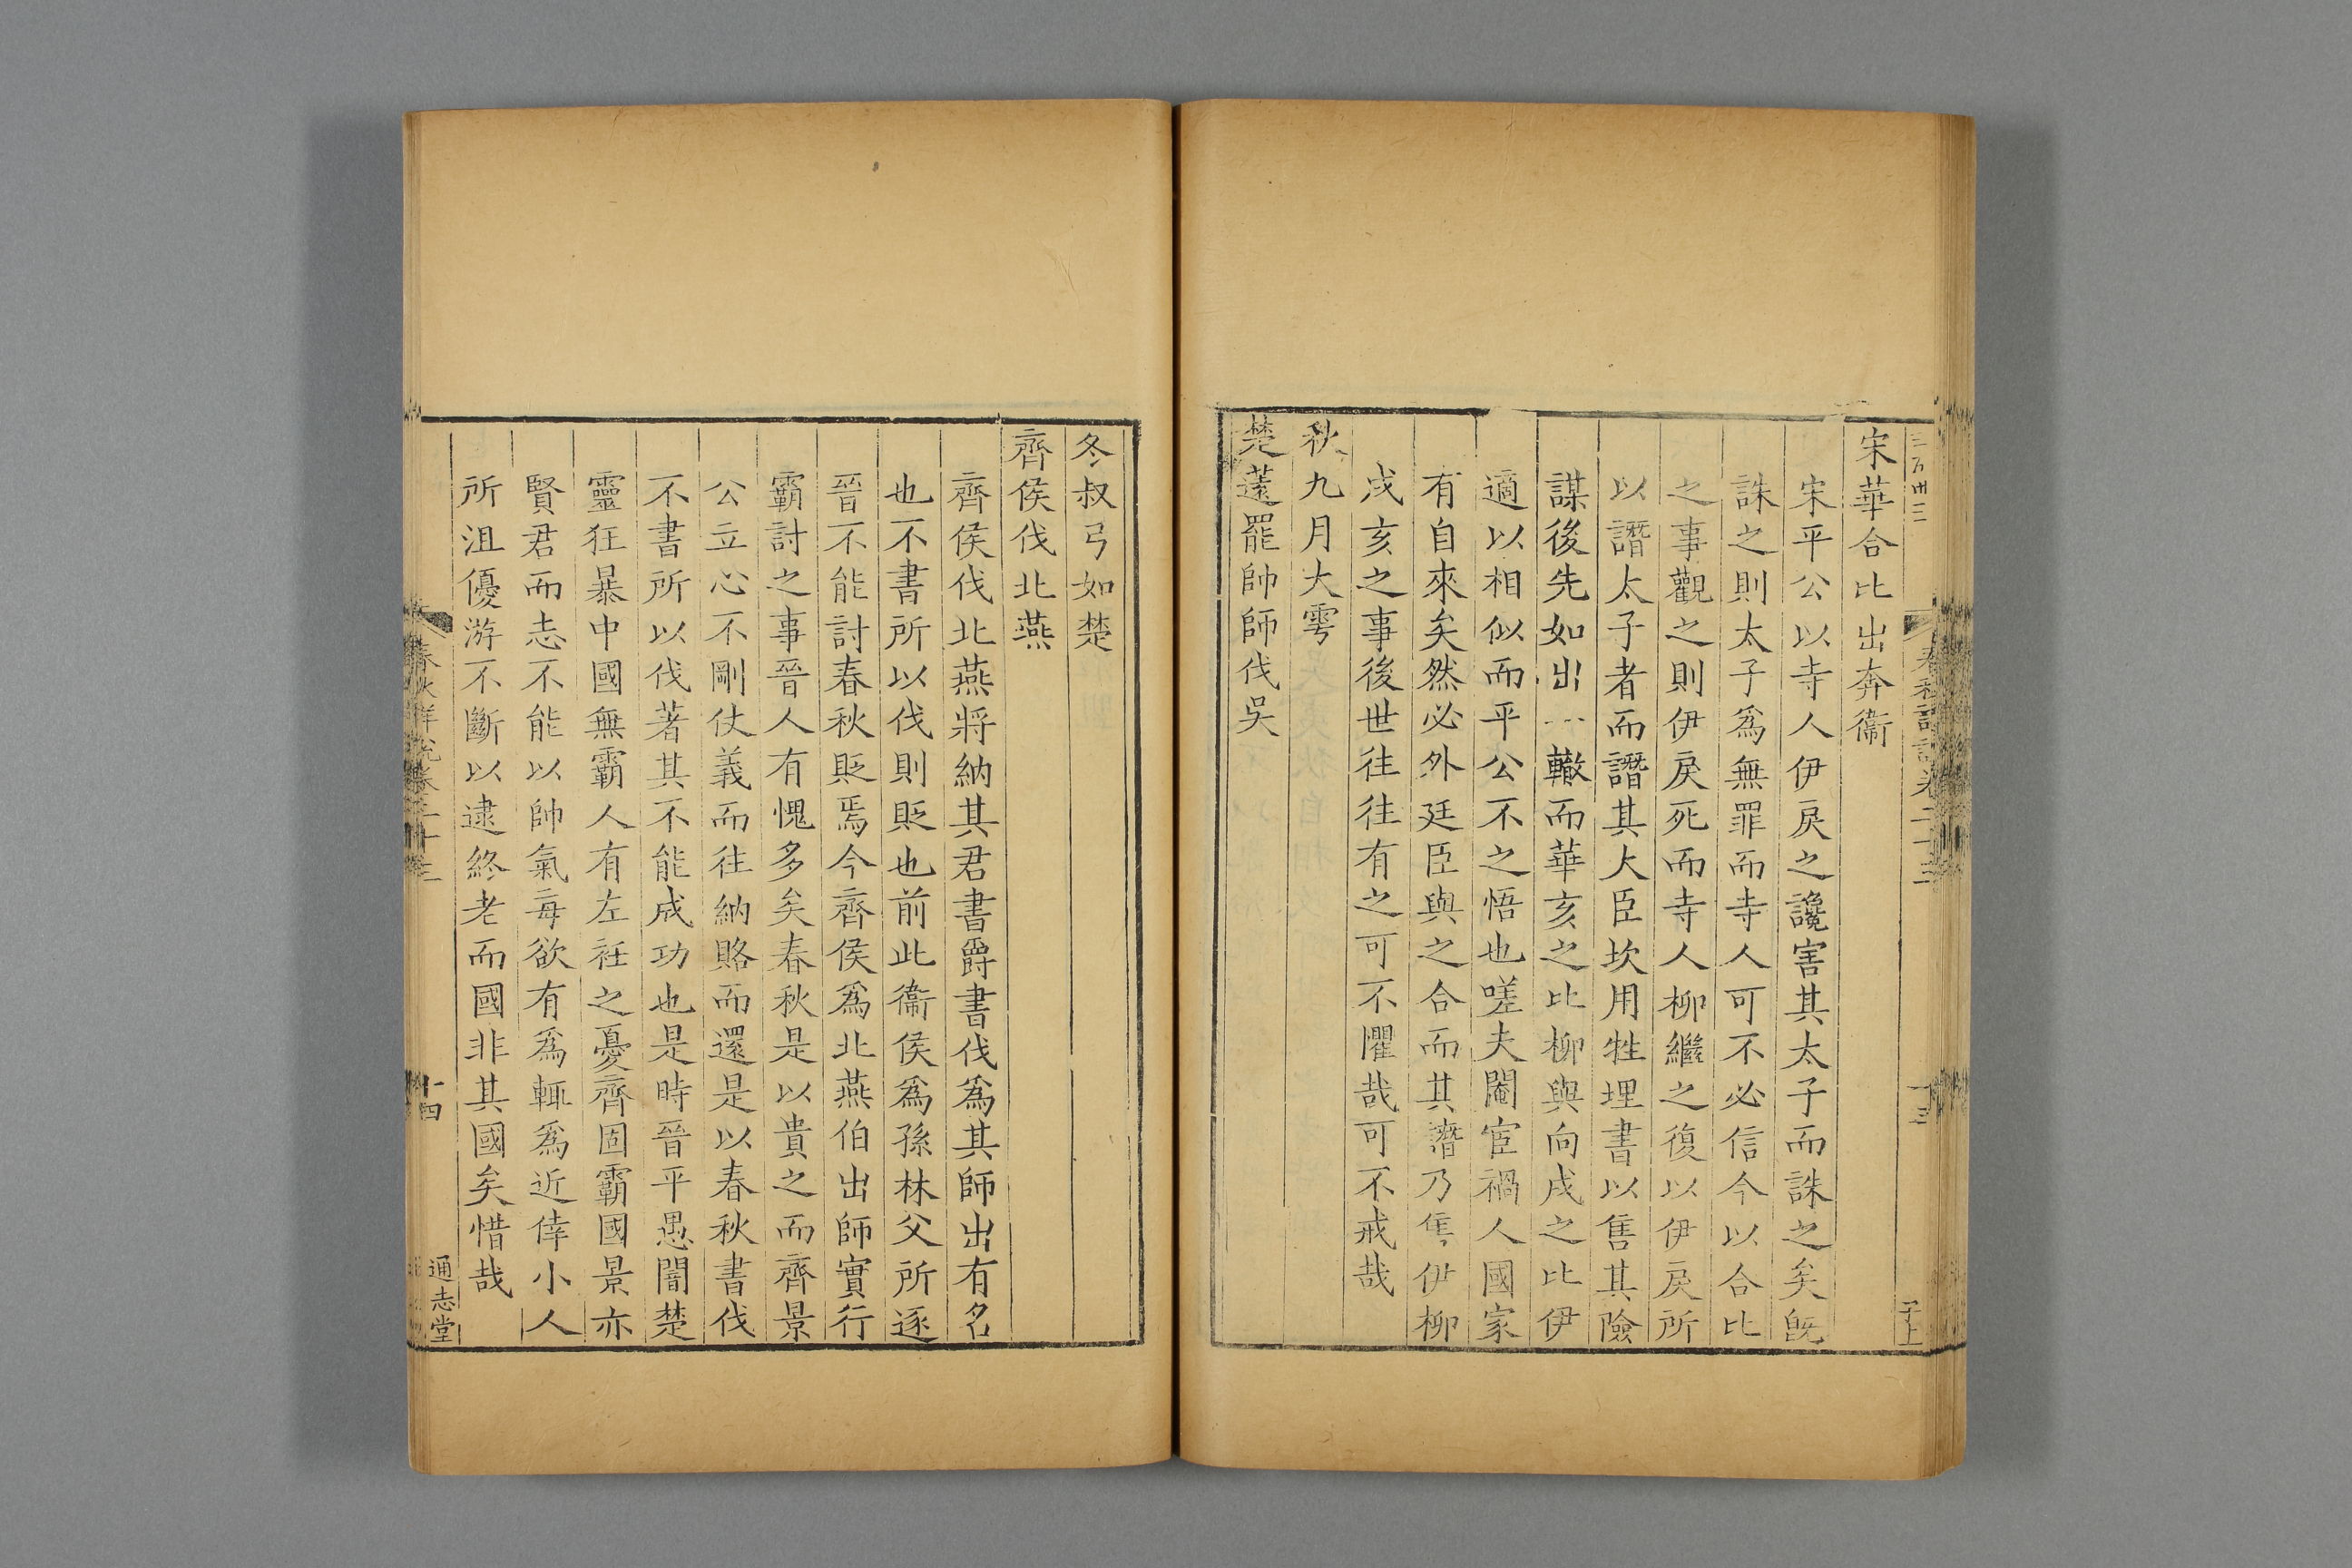 宋華合比出奔衞
宋平公以寺人伊戾之讒害其太子而誅之矣旣
誅之則太子爲無罪而寺人可不必信今以合比
之事觀之則伊戾死而寺人柳繼之復以伊戾所
以譖太子者而譖其大臣坎用牲埋書以售其險
謀後先如出一轍而華亥之比柳與向戌之比伊
適以相似而平公不之悟也嗟夫閹宦禍人國家
有自來矣然必外廷臣與之合而其譖乃售伊柳
戌亥之事後世往往有之可不懼哉可不戒哉
秋九月大雩
楚薳罷帥師伐吳
冬叔弓如楚
齊侯伐北燕
齊侯伐北燕將納其君書爵書伐爲其師出有名
也不書所以伐則貶也前此衞侯爲孫林父所逐
晉不能討春秋貶焉今齊侯爲北燕伯出師實行
霸討之事晉人有愧多矣春秋是以貴之而齊景
公立心不剛仗義而往納賂而還是以春秋書伐
不書所以伐著其不能成功也是時晉平愚闇楚
靈狂暴中國無霸人有左衽之憂齊固霸國景亦
賢君而志不能以帥氣每欲有爲輒爲近倖小人
所沮優游不斷以逮終老而國非其國矣惜哉
春秋詳說卷二十三
十四
通志堂